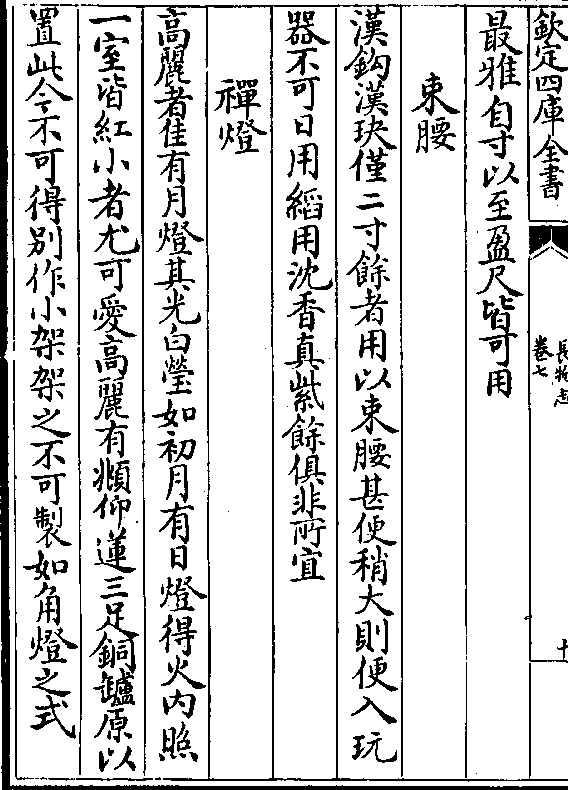 欽定四庫全書
長物志
卷七
十
最雅自寸以至盈尺皆可用
束腰
漢鈎漢玦僅二寸餘者用以束腰甚便稍大則便入玩
器不可日用縚用沈香真紫餘俱非所宜
禪燈
高麗者佳有月燈其光白瑩如初月有日燈得火内照
一室皆紅小者尤可愛高麗有頫仰蓮三足銅鑪原以
置此今不可得别作小架架之不可製如角燈之式